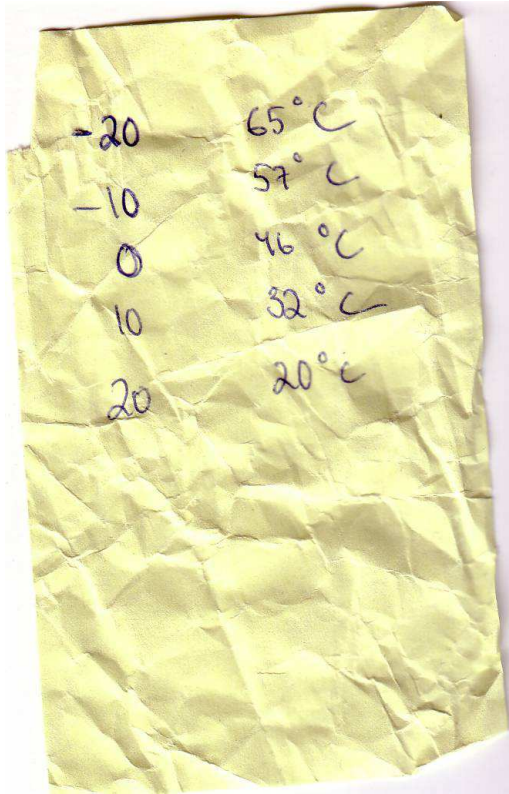 -20 65°C
-10 57°C
0 46°C
10 32°C
20 20°C